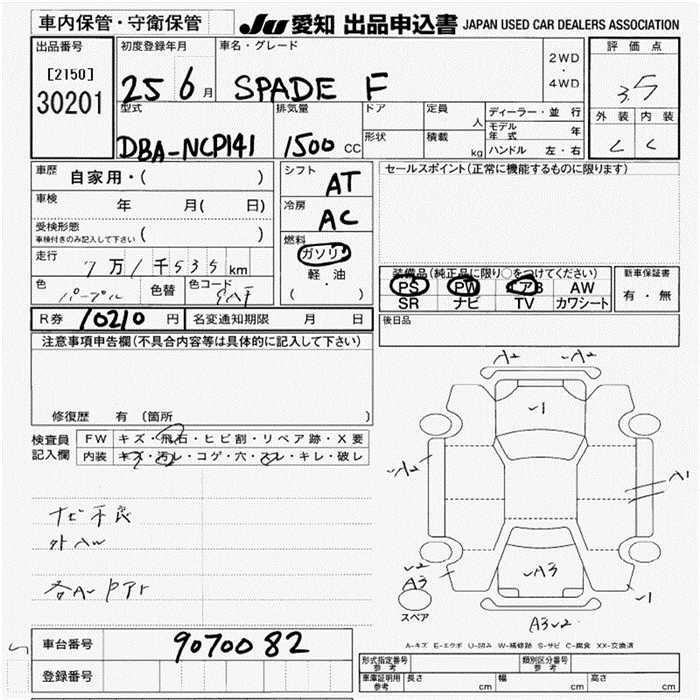 車内保管・守衛保管
JU 愛知 出品申込書 JAPAN USED CAR DEALERS ASSOCIATION
出品番号
[2150]
30201
初度登録年月
25 6 月
車名・グレード
SPADE F
2WD
・
4WD
評価点
3.5
外装 内装
型式
DBA-NCP141
排気量
1500 CC
ドア
形状
定員 人
積載 kg
ディーラー・並行
モデル年式 年
ハンドル 左・右
車歴 自家用・( )
車検 年 月( 日)
受検形態
車検付きのみ記入して下さい ( )
走行 7万1千535km
色 パープル 色替 色コード
シフト AT
冷房 AC
燃料
ガソリン
軽・油
( )
セールスポイント(正常に機能するものに限ります)
装備品(純正品に限り○をつけてください)
PS PW エアB AW
SR ナビ TV カワシート
新車保証書
有・無
R券 10210 円 名変通知期限 月 日
後日品
注意事項申告欄(不具合内容等は具体的に記入して下さい)
修復歴 有 (箇所 )
検査員
記入欄
FW キズ・飛石・ヒビ割・リペア跡・X要
内装 キズ・汚レ・コゲ・穴・スレ・キレ・破レ
ナビ不良
外AW
A2 A2
1
A2
A1
2
A3
A3
1
A3 2
スペア
A-キズ E-エクボ U-凹み W-補修跡 S-サビ C-腐食 XX-交換済
車台番号 9070082
登録番号
形式指定番号
参考
類別区分番号
参考
車庫証明用
参考
長さ cm 幅 cm 高さ cm